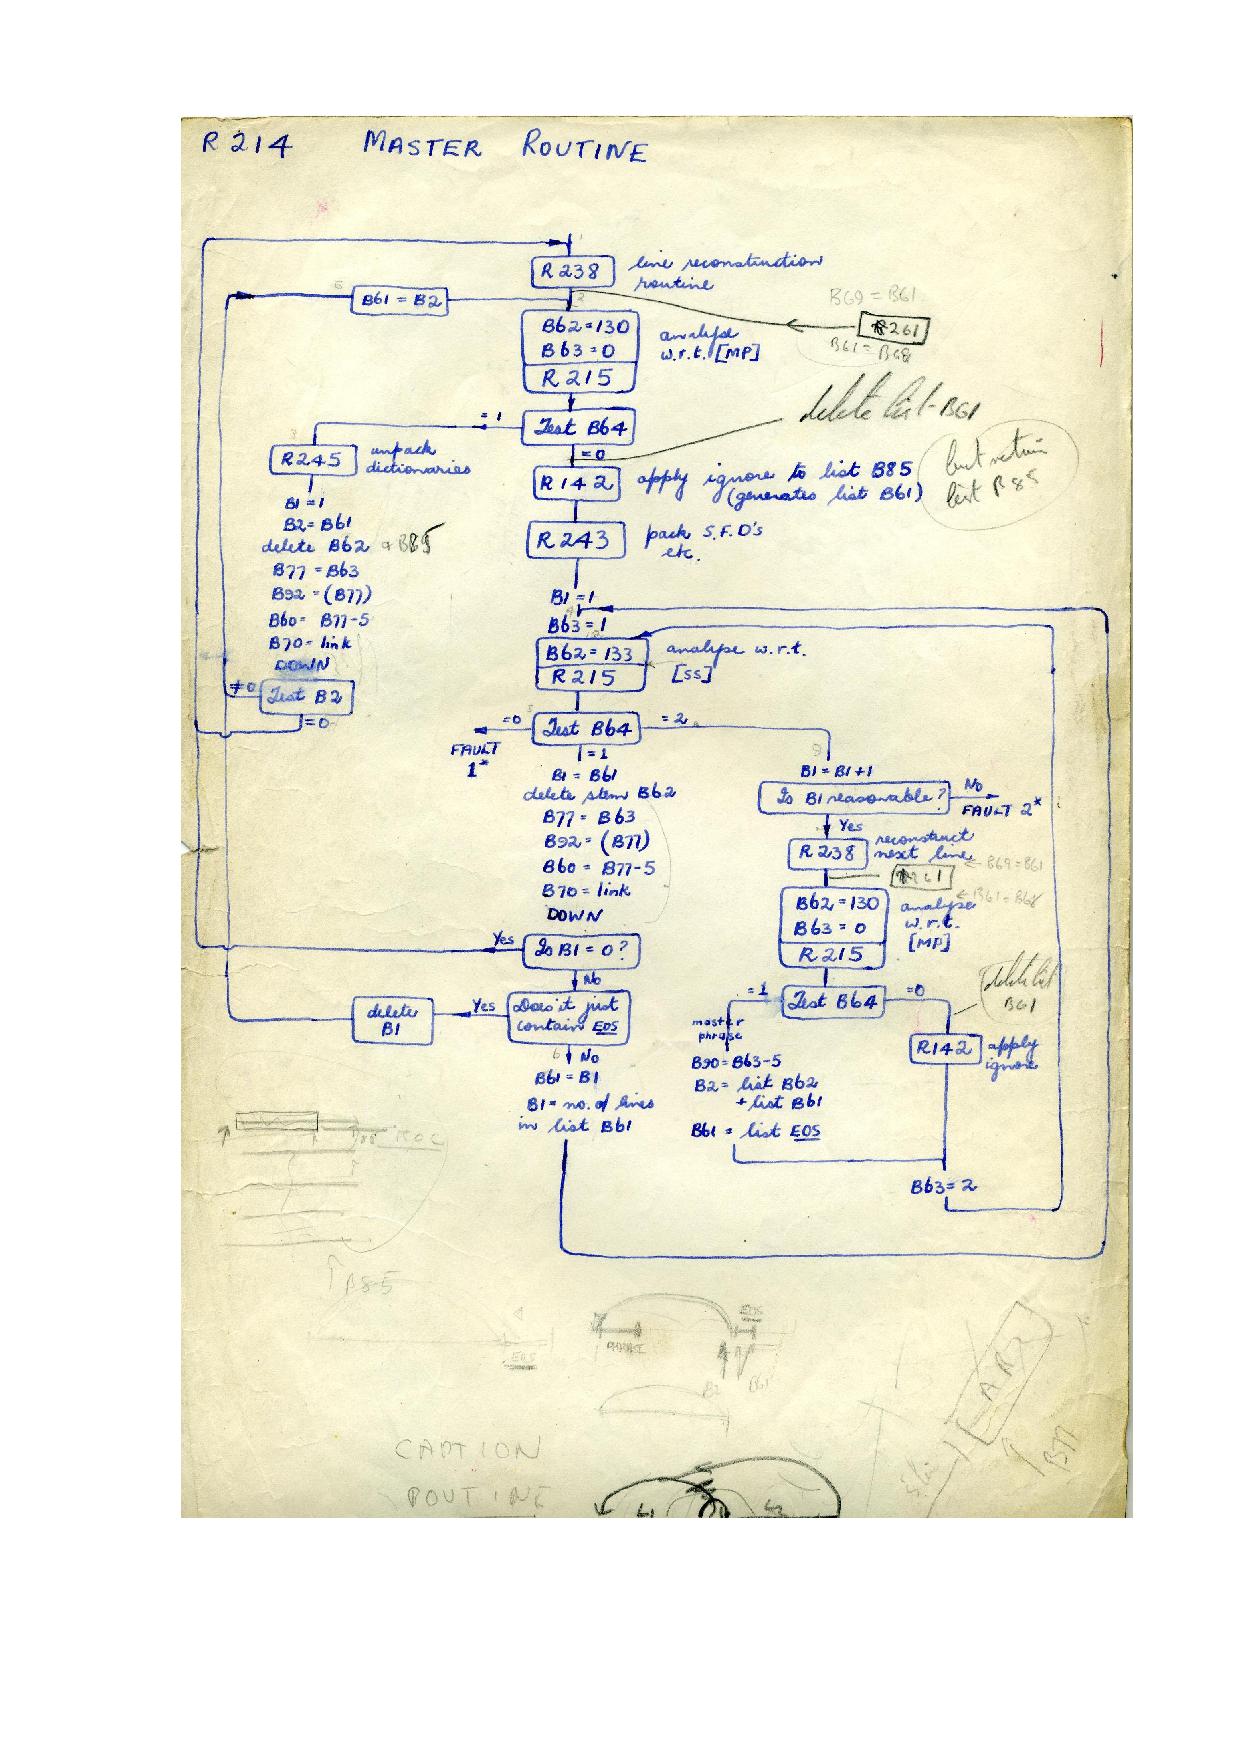 R 214 MASTER ROUTINE
R 238
line reconstruction
routine
B61 = B2
B69 = B61
R261
B61 = B68
B62=130
B63=0
R 215
analyse
w.r.t. [MP]
delete list B61
=1
Test B64
=0
R 245
unpack
dictionaries
R 142
apply ignore to list B85
(generates list B61)
but retain
list B85
B1=1
B2=B61
delete B62 & B85
B77 = B63
B92 = (B77)
B60= B77-5
B70= link
DOWN
≠0
Test B2
=0
R 243
pack S.F.D's
etc.
B1=1
B63=1
B62=133
R 215
analyse w.r.t.
[SS]
=0
Test B64
=2
FAULT
1*
=1
B1 = B61
delete stem B62
B77 = B63
B92 = (B77)
B60 = B77-5
B70 = link
DOWN
B1 = B1+1
Is B1 reasonable?
No
FAULT 2*
Yes
R 238
reconstruct
next line
B69=B61
B61=B68
B62=130
B63=0
R 215
analyse
w.r.t.
[MP]
Yes
Is B1 = 0?
No
delete
B1
Yes
Does it just
contain EOS
No
B61 = B1
B1= no. of lines
in list B61
=1
Test B64
=0
delete list
B61
master
phrase
R142
apply
ignore
B90=B63-5
B2= list B62
+ list B61
B61 = list EOS
B63=2
B85
EOS
PHRASE
EOS
B2
B61
B77
CAPTION
ROUTINE